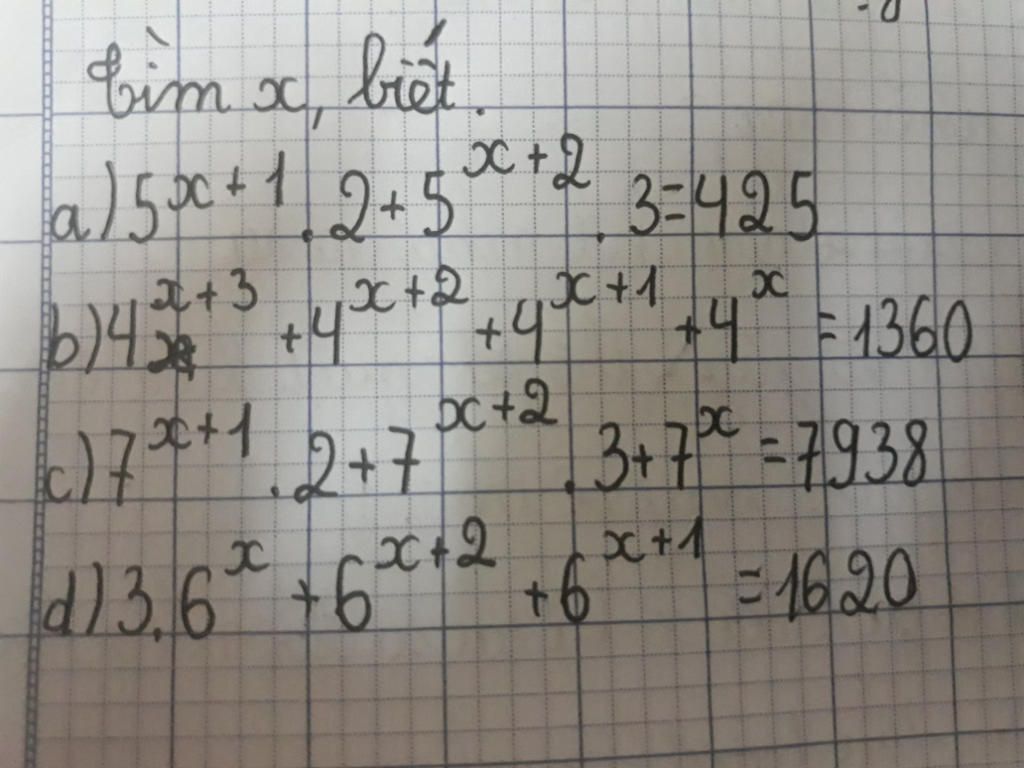 tìm x, biết.
a) 5^{x+1} . 2 + 5^{x+2} . 3 = 425
b) 4^{x+3} + 4^{x+2} + 4^{x+1} + 4^x = 1360
c) 7^{x+1} . 2 + 7^{x+2} . 3 + 7^x = 7938
d) 3. 6^x + 6^{x+2} + 6^{x+1} = 1620